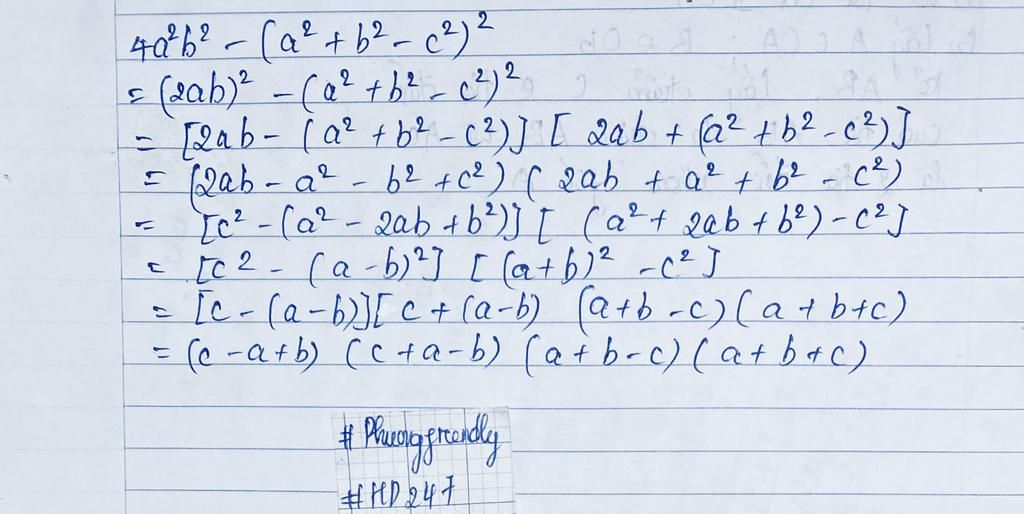 4a²b² - (a² + b² - c²)²
= (2ab)² - (a² + b² - c²)²
= [2ab - (a² + b² - c²)] [ 2ab + (a² + b² - c²)]
= (2ab - a² - b² + c²) ( 2ab + a² + b² - c²)
= [c² - (a² - 2ab + b²)] [ (a² + 2ab + b²) - c²]
= [c² - (a - b)²] [(a+b)² - c²]
= [c - (a - b)][ c + (a - b) (a + b - c) ( a + b + c)
= (c - a + b) (c + a - b) (a + b - c) ( a + b + c)
# Phuonggreendly
#HD247